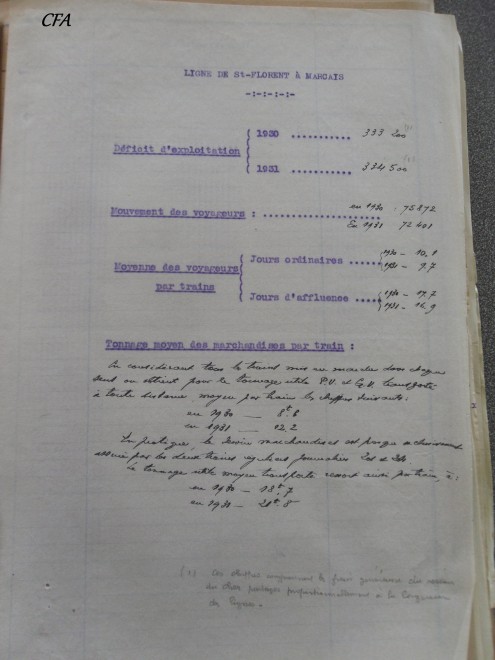 CFA
LIGNE DE St-FLORENT À MARCAIS
-:-:-:-:-
Déficit d'exploitation
1930 ........... 333 200
1931 ........... 334 500
Mouvement des voyageurs : ..................... en 1930 75872
En 1931 72401
Moyenne des voyageurs par trains
Jours ordinaires ...... 1930 — 10,1
1931 — 9,7
Jours d'affluence ..... 1930 — 17,7
1931 — 16,9
Tonnage moyen des marchandises par train :
En considérant tous les trains mis en marche dans chaque
sens on obtient pour le tonnage utile P.V. et G.V. transporté
à toute distance, moyen par trains les chiffres suivants :
en 1930 — 8t.8
en 1931 — 12,2
En pratique, le service marchandises est presque exclusivement
assuré par les deux trains réguliers journaliers
le tonnage utile moyen transporté ressort ainsi par train, à :
en 1930 — 18t.7
en 1931 — 21t.5
(1) Ces chiffres comprennent les frais généraux du réseau
proportionnellement à la longueur